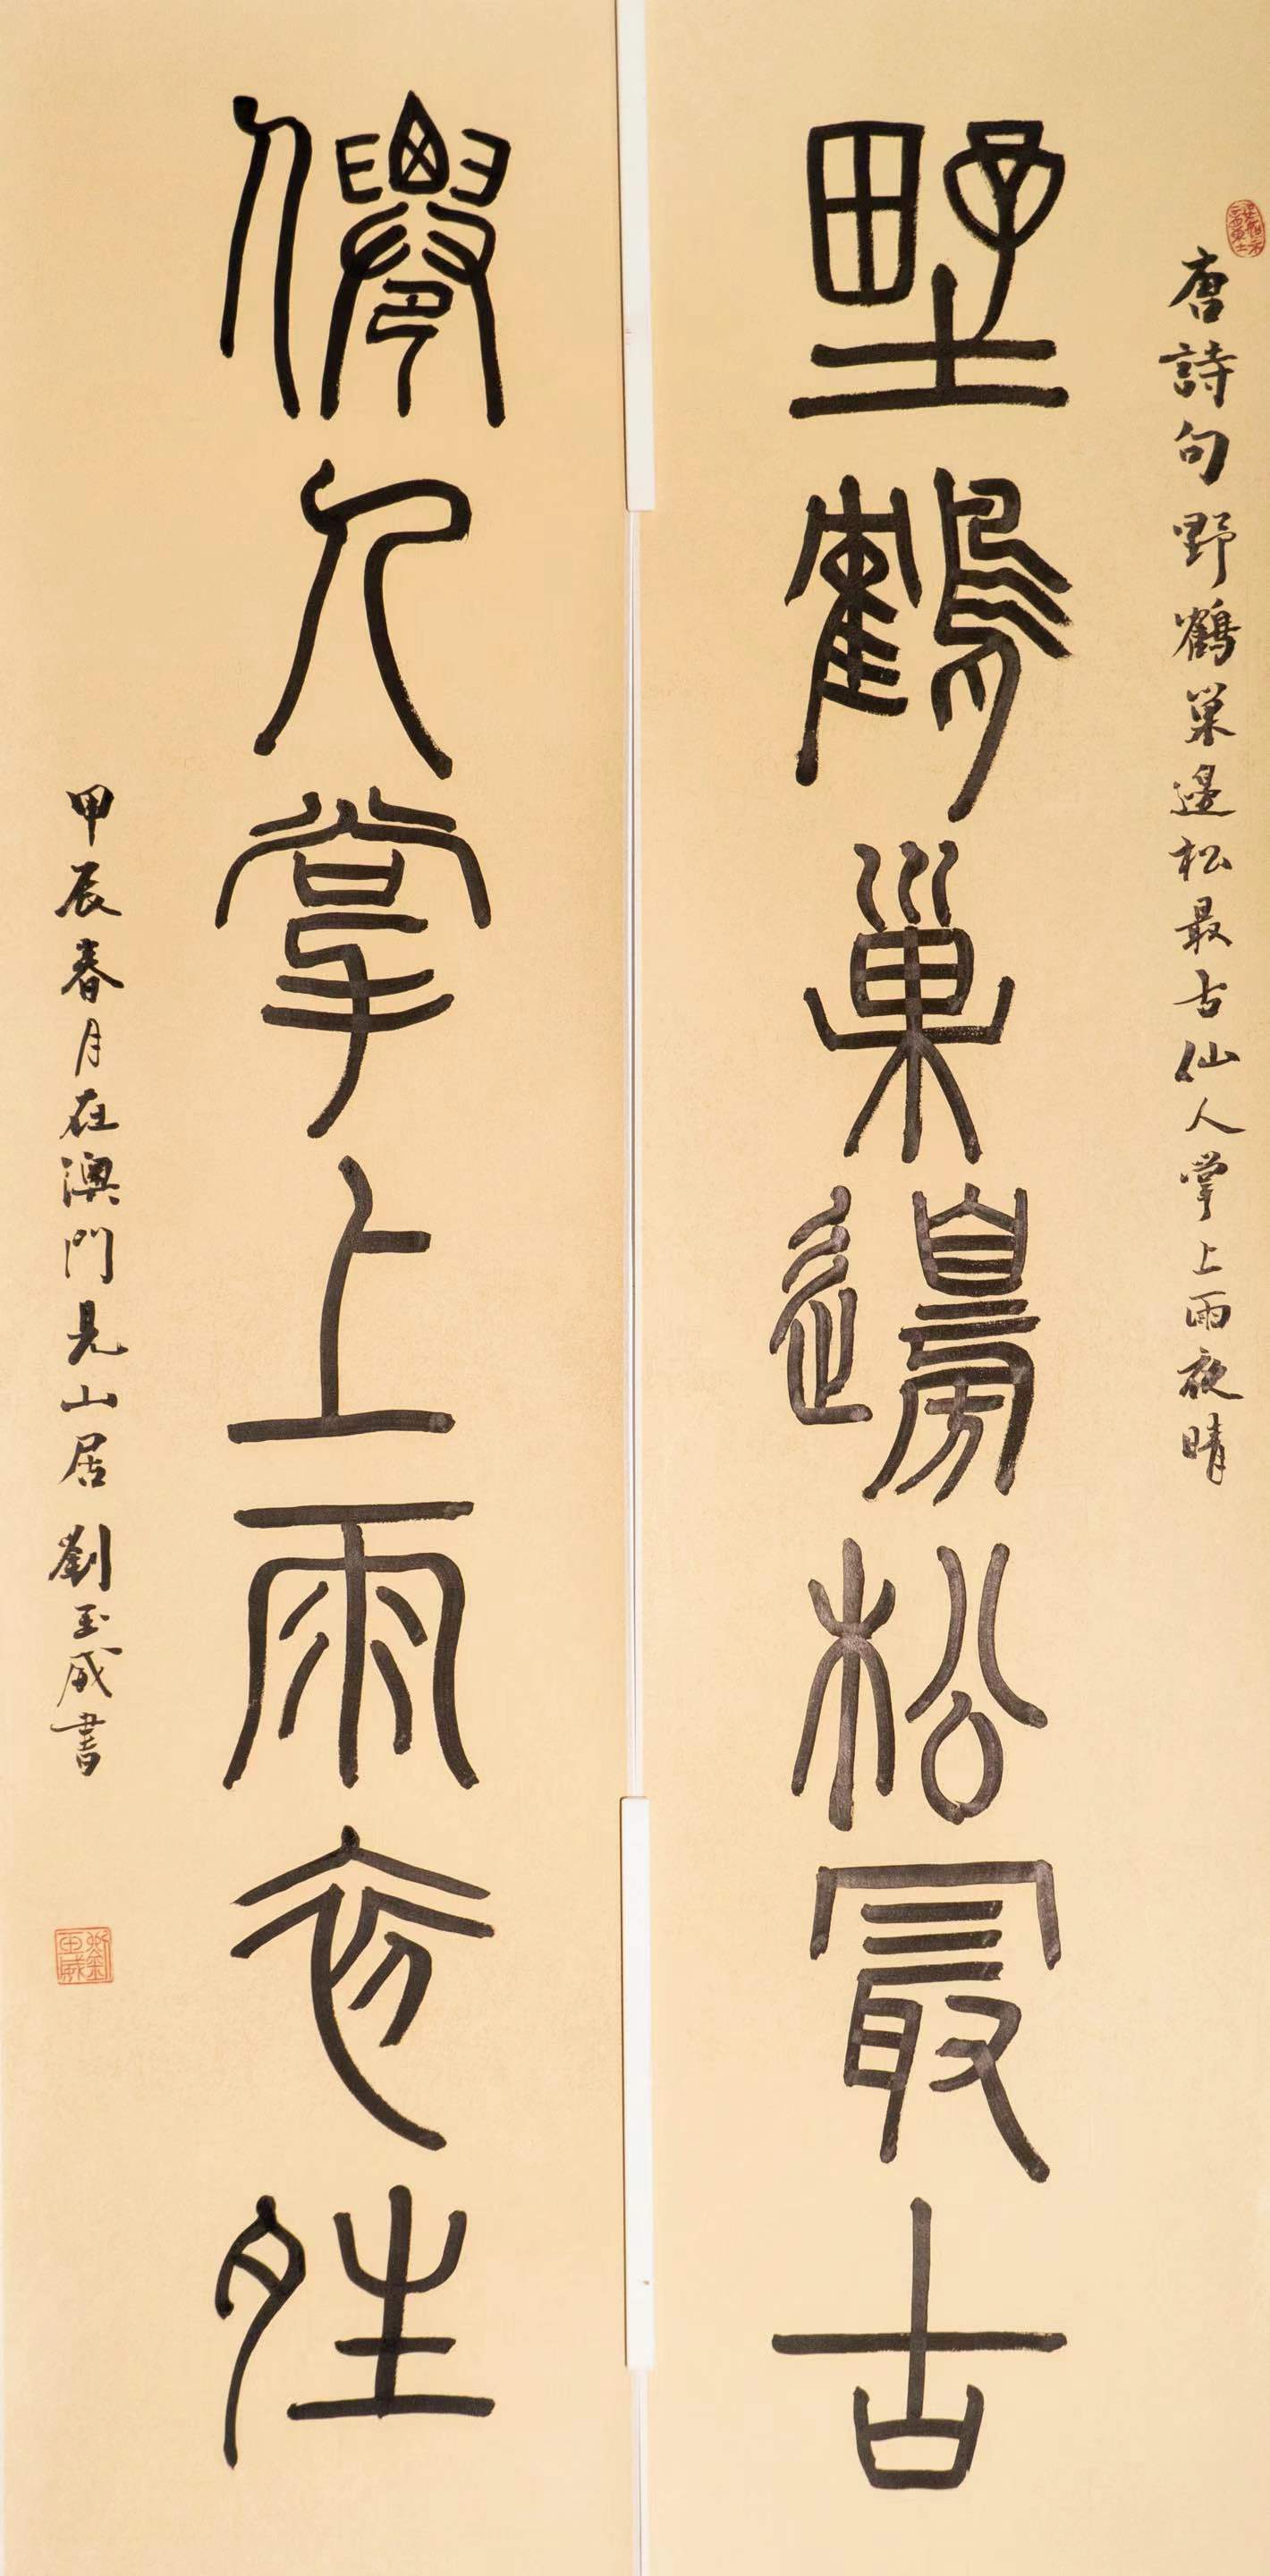 唐詩句野鶴巢邊松最古仙人掌上雨夜晴
野鶴巢邊松最古
僊人掌上雨夜夝
甲辰春月在澳門見山居劉玉威書